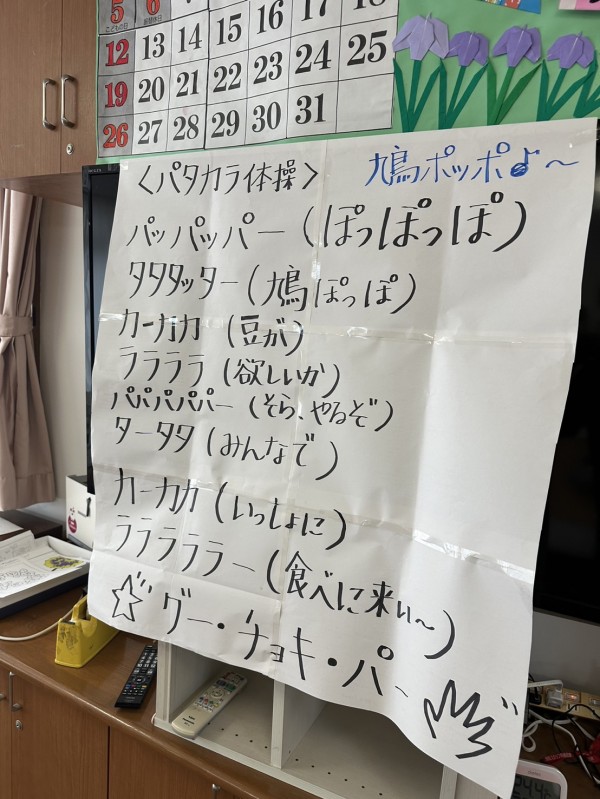 5 6 17 18
こどもの日 振替休日
12 13 14 15 16 17 18
19 20 21 22 23 24 25
26 27 28 29 30 31
<パタカラ体操> 鳩ポッポ♪～
パッパッパー (ぽっぽっぽ)
タタタッター (鳩ぽっぽ)
カーカカ (豆が)
ララララ (欲しいか)
パパパパパー (そら、やるぞ)
タータタ (みんなで)
カーカカ (いっしょに)
ラララララー (食べに来い～)
☆グー・チョキ・パー